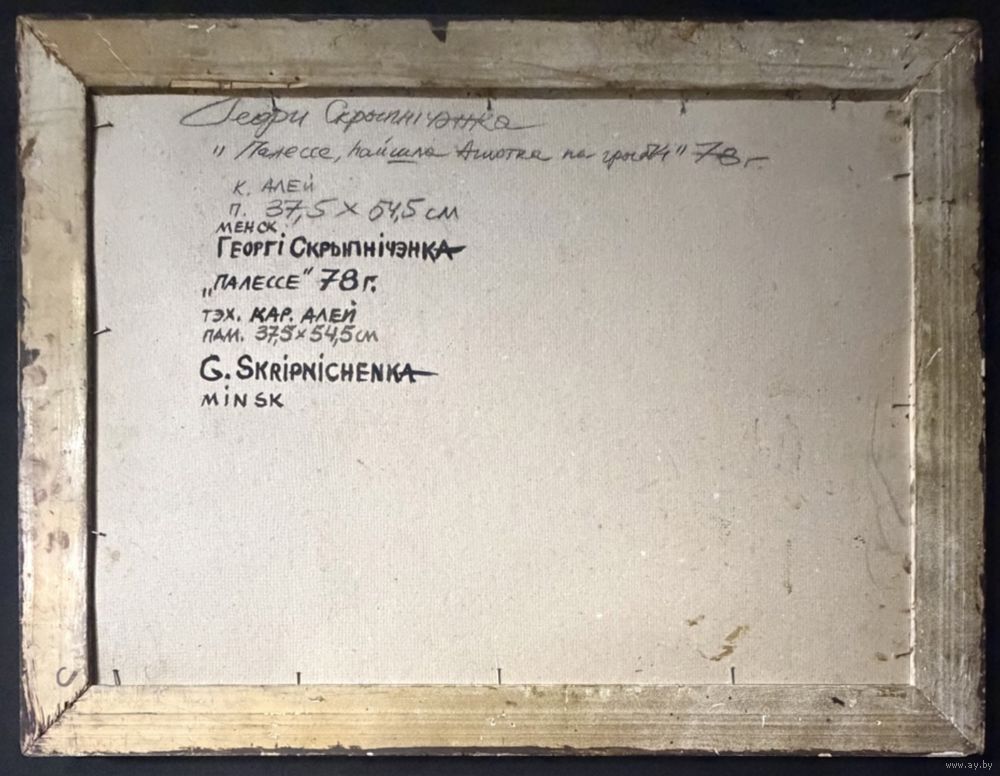 Георгі Скрыпнічэнка
"Палессе, па" 78 г.
к. алей
п. 37,5 × 54,5 см
МЕНСК.
ГЕОРГІ СКРЫПНІЧЭНКА
„ПАЛЕССЕ" 78 г.
ТЭХ. КАР. АЛЕЙ
ПАМ. 37,5 × 54,5 см
G. SKRIPNICHENKA
MINSK
www.ay.by